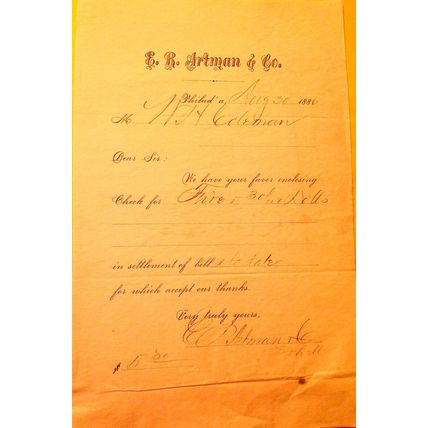 E. R. Artman & Co.
Philad'a, Aug 30 1886
M W H Coleman
Dear Sir:
We have your favor enclosing
Check for Five & 30/100 Dolls
in settlement of bill to date
for which accept our thanks.
Very truly yours,
E R Artman & Co
$ 5 30